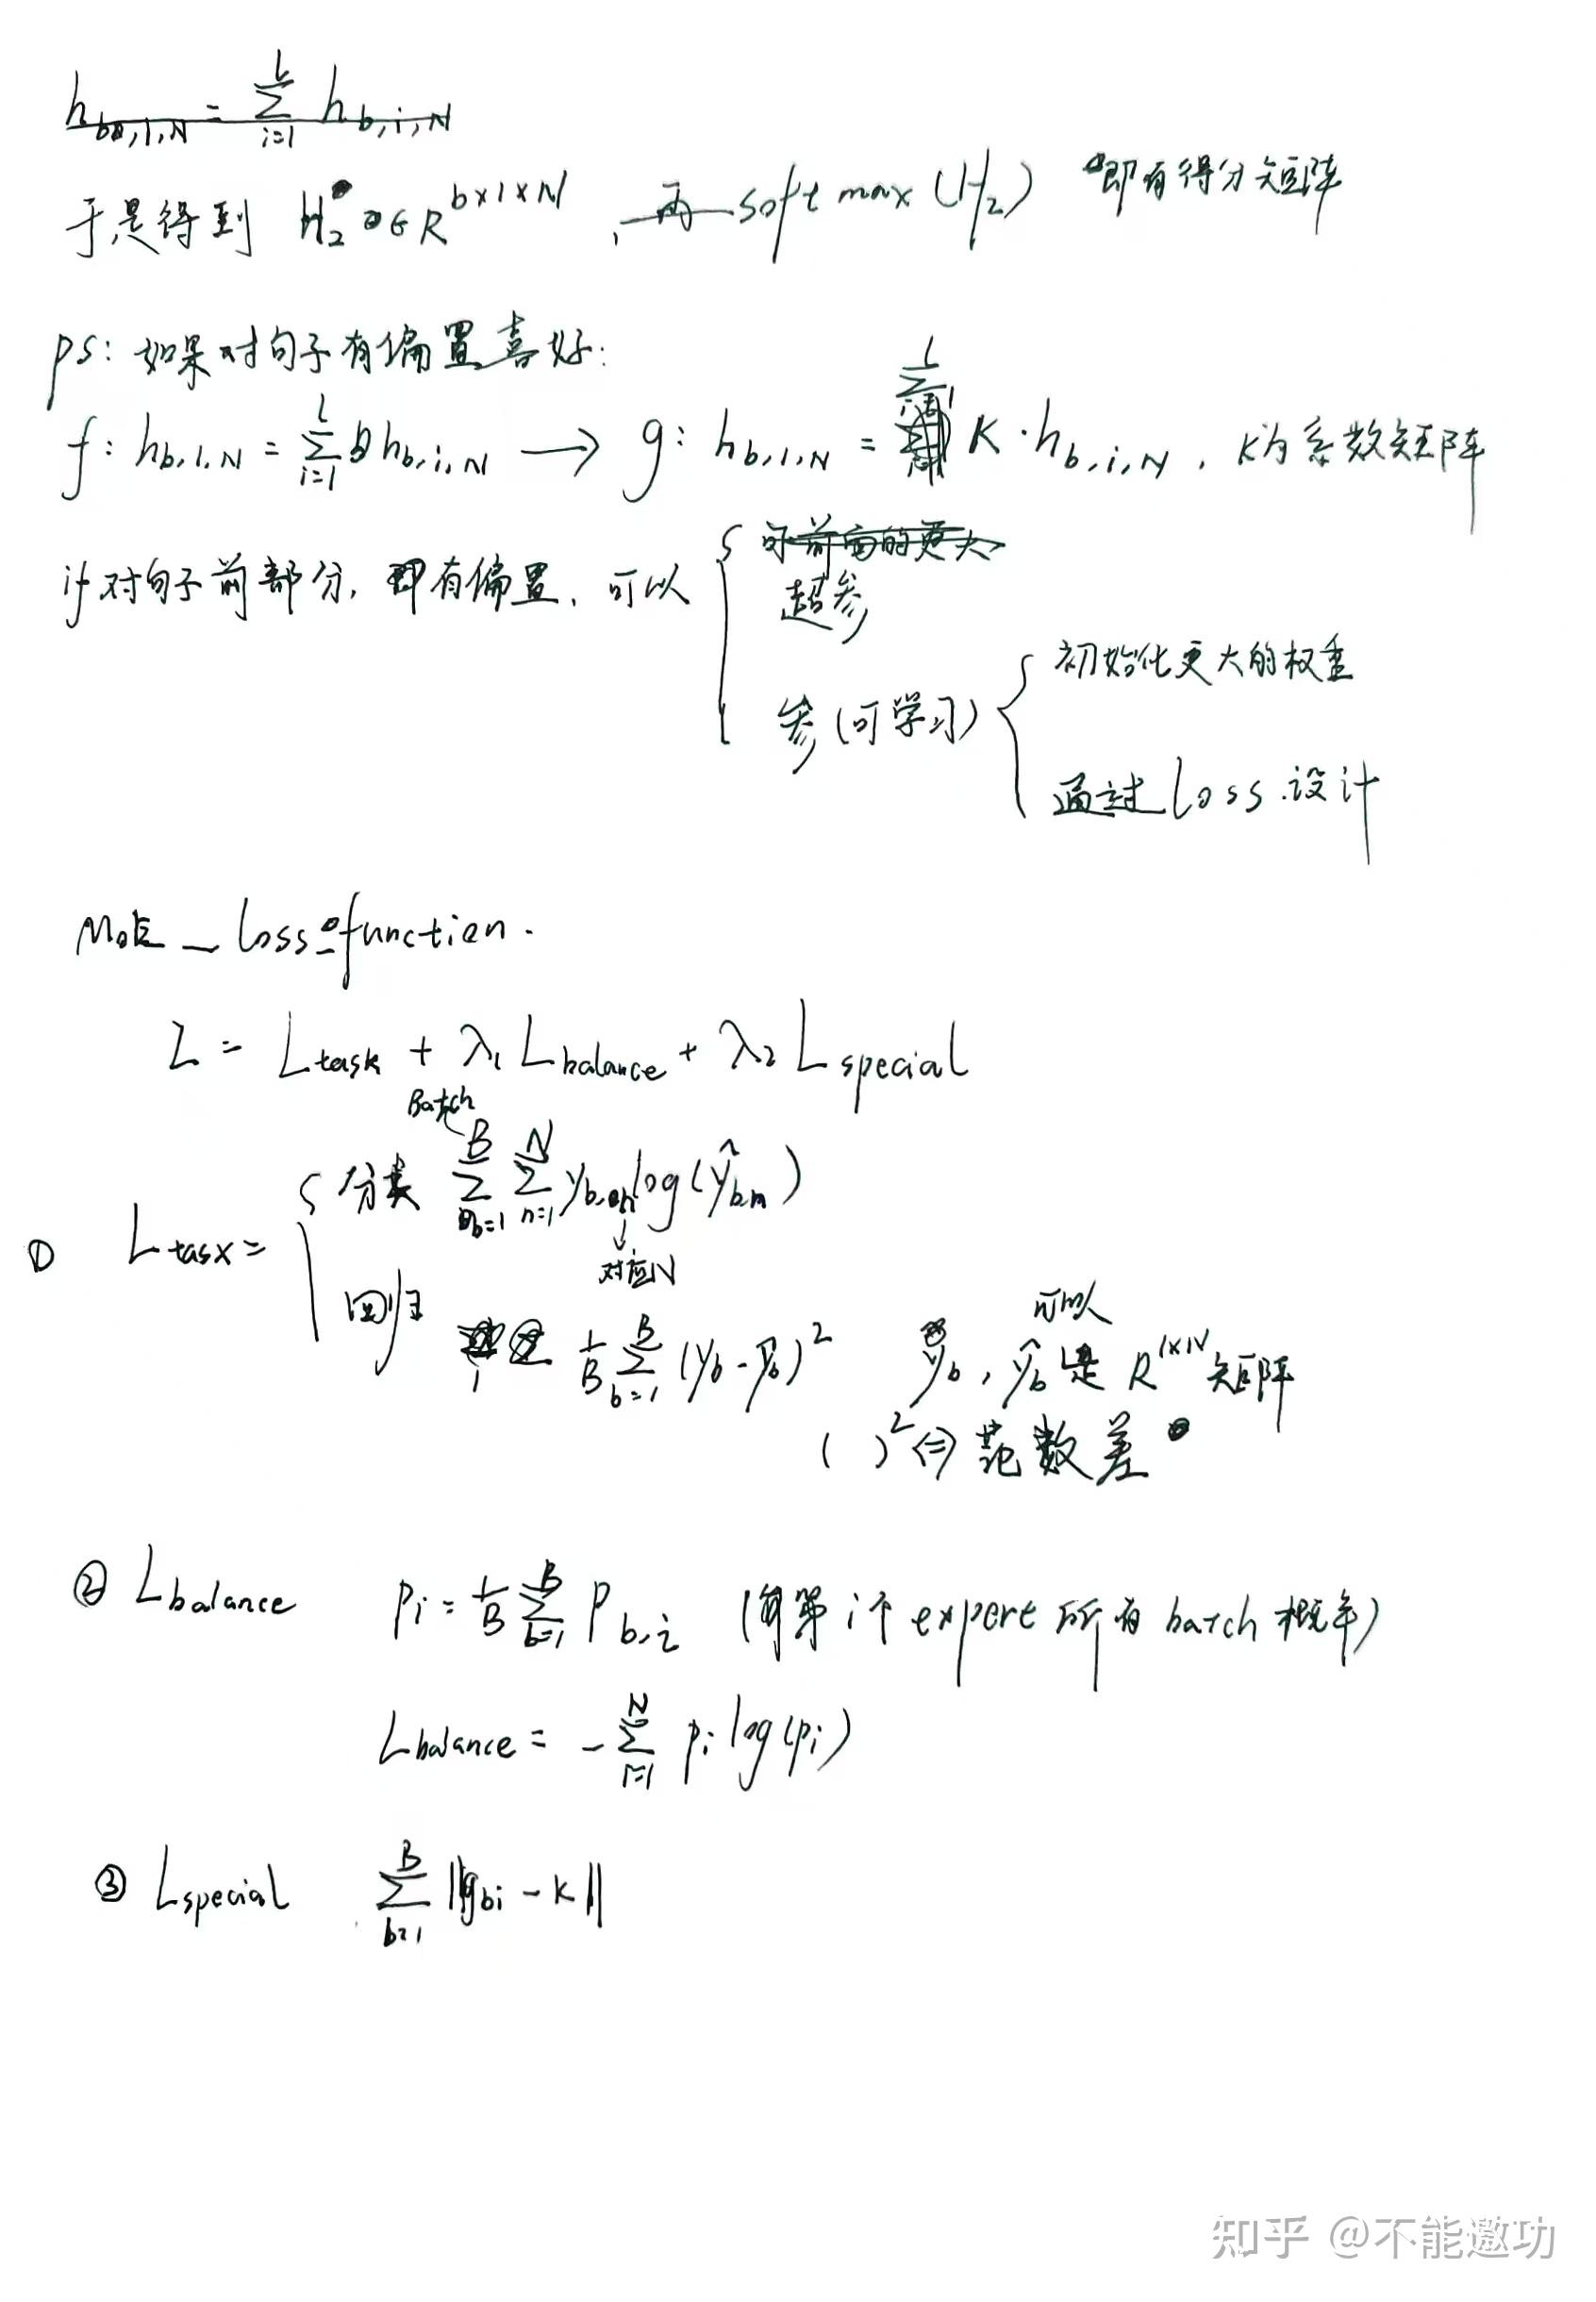 h_{b,1,N} = \sum_{i=1}^{L} h_{b,i,N}
于是得到 H_2 ∈ R^{b×1×N}, 再 softmax(H_2) 即有得分矩阵
ps: 如果对句子有偏置喜好:
f: h_{b,1,N} = \sum_{i=1}^{L} h_{b,i,N} → g: h_{b,1,N} = \sum_{i=1}^{L} K · h_{b,i,N}, K为系数矩阵
if 对句子前部分, 即有偏置, 可以
超参
参(可学习)
初始化更大的权重
通过 Loss 设计
MoE_loss_function.
L = L_{task} + λ_1 L_{balance} + λ_2 L_{special}
Batch
① L_{task} =
分类 \sum_{b=1}^{B} \sum_{n=1}^{N} y_{b,n} log(\hat{y}_{b,n})
对应N
回归 \frac{1}{B} \sum_{b=1}^{B} (y_b - \hat{y}_b)^2 y_b, \hat{y}_b 可以是 R^{1×N} 矩阵
( )^2 ⇔ 范数差
② L_{balance} p_i = \frac{1}{B} \sum_{b=1}^{B} P_{b,i} (第 i 个 expert 所有 batch 概率)
L_{balance} = - \sum_{i=1}^{N} p_i log(p_i)
③ L_{special} \sum_{b=1}^{B} ||g_{bi} - K||
知乎 @不能邀功